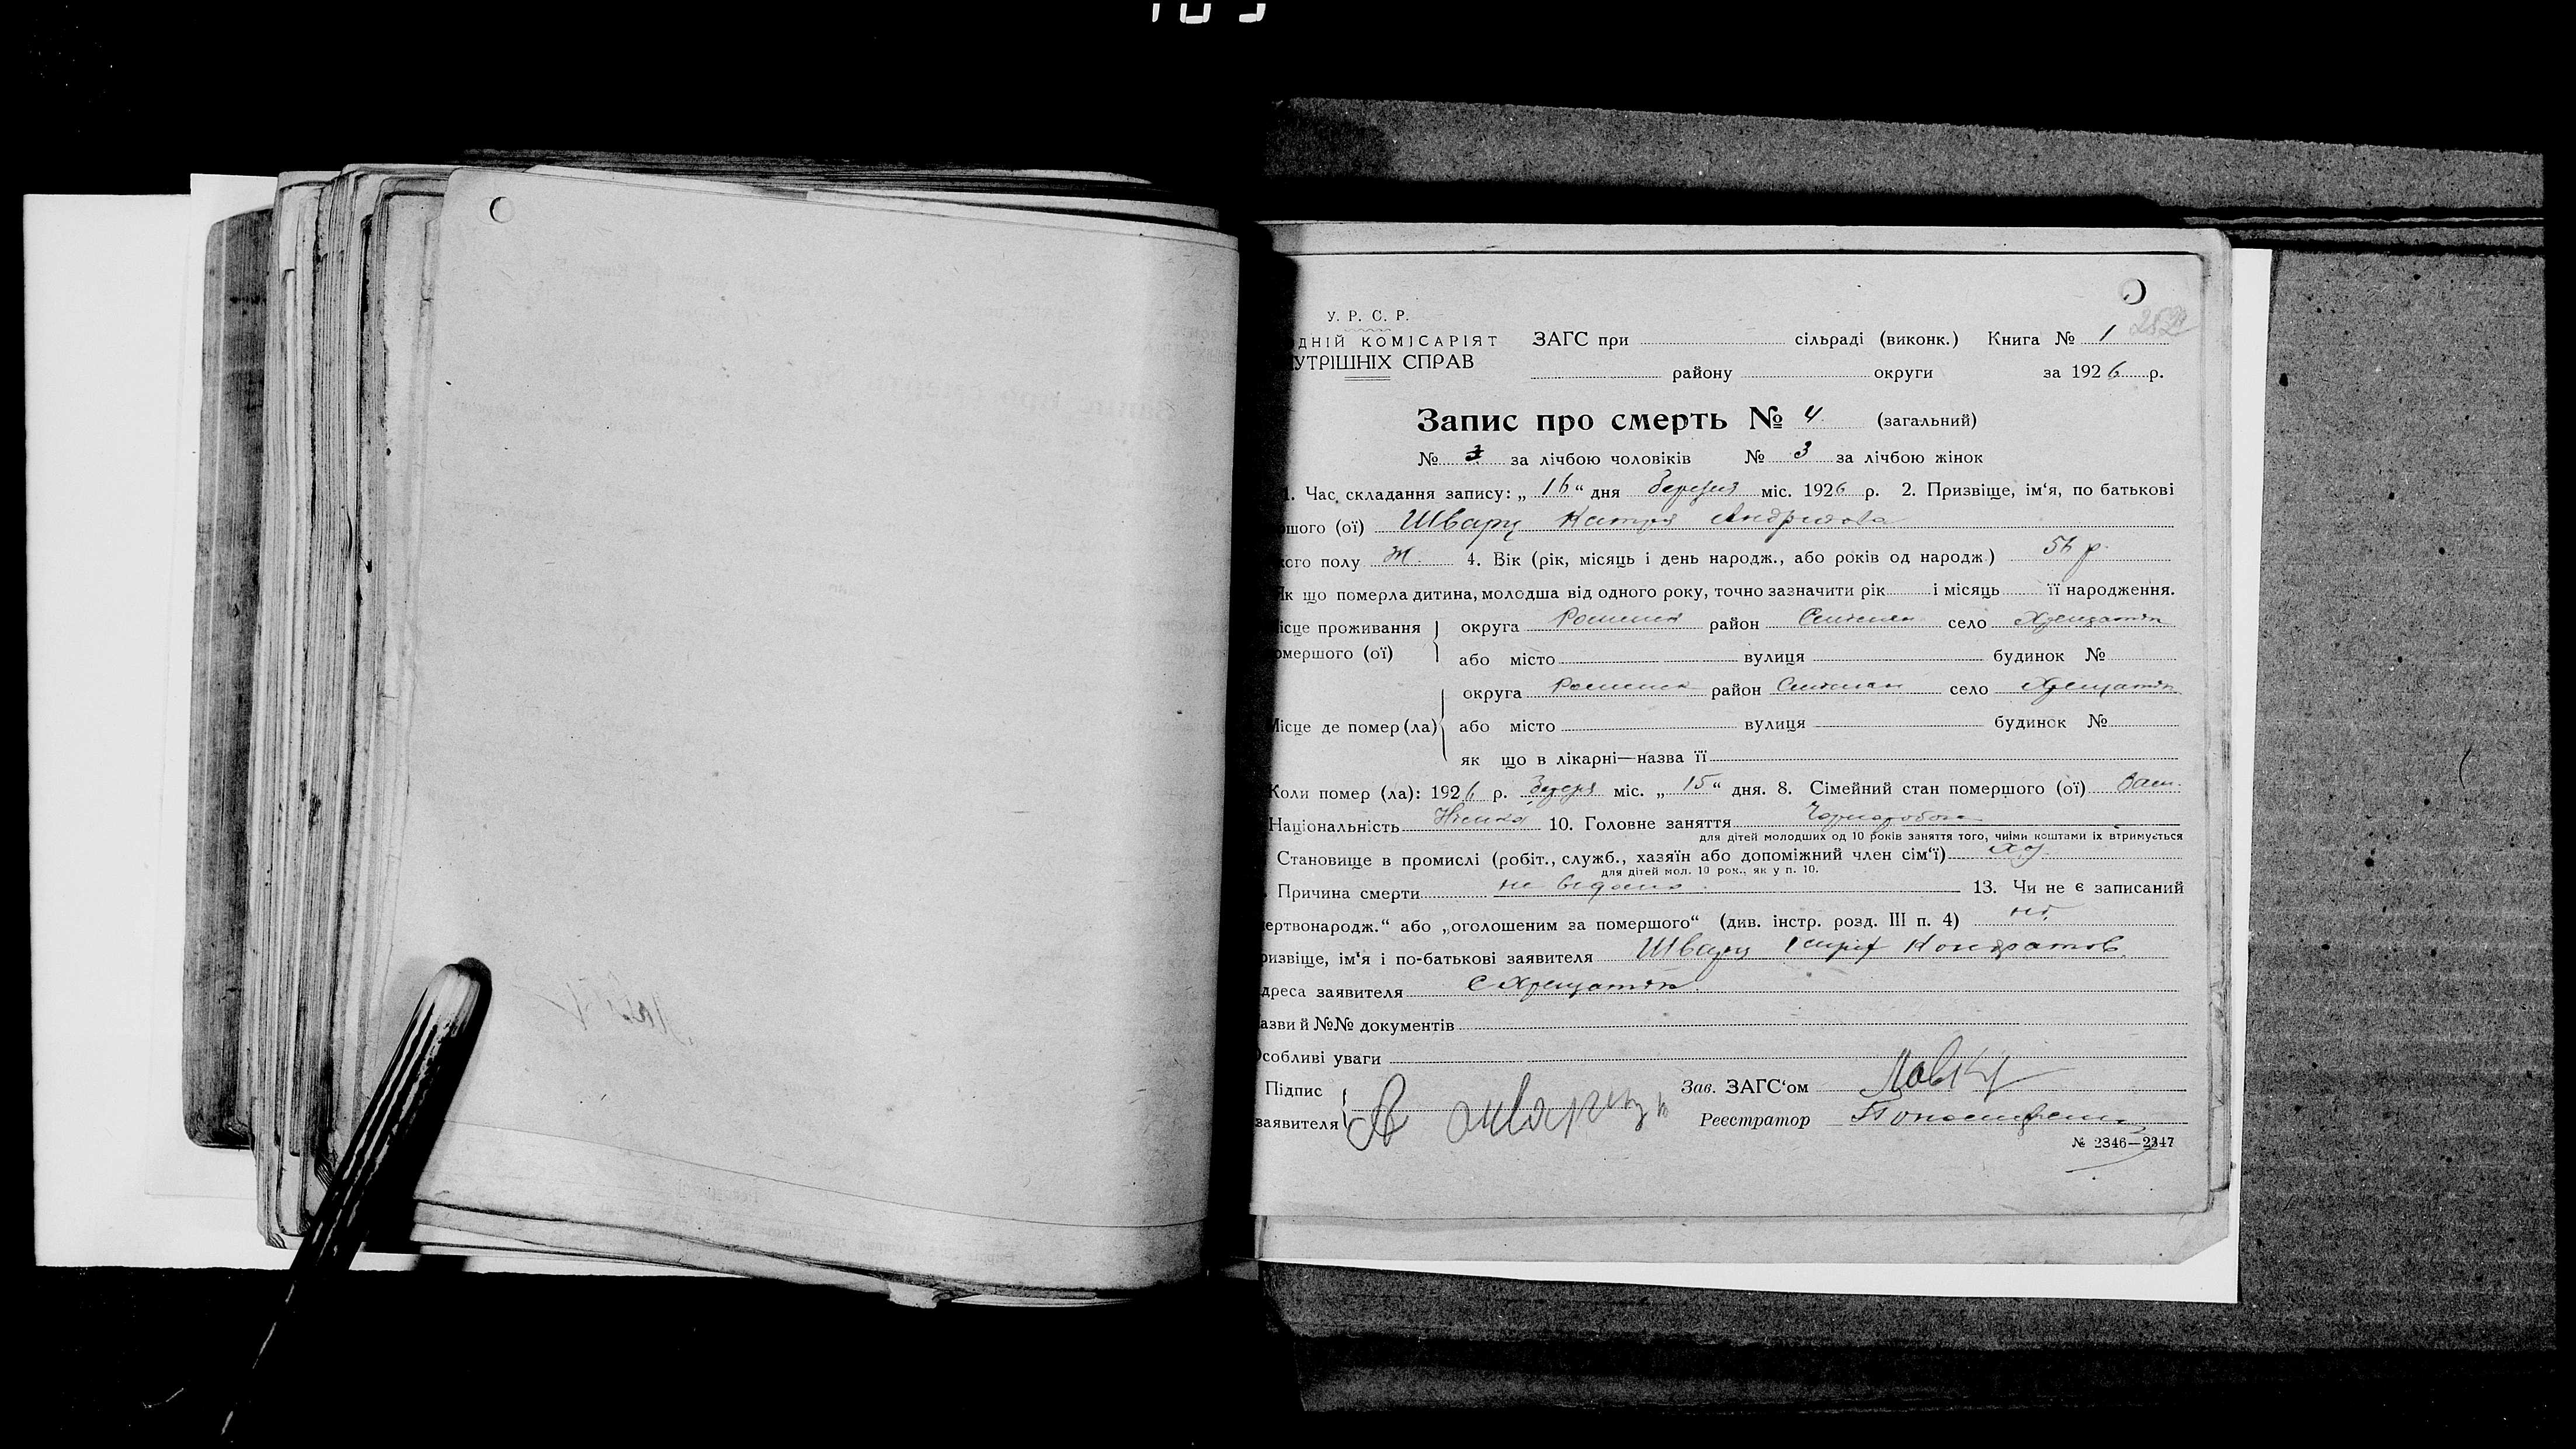 У. Р. С. Р.
ДНІЙ КОМІСАРІЯТ ЗАГС при сільраді (виконк.) Книга № 1
УТРІШНІХ СПРАВ району округи за 1926 р.
252
Запис про смерть № 4 (загальний)
№ за лічбою чоловіків № 3 за лічбою жінок
1. Час складання запису: „16“ дня березня міс. 1926 р. 2. Призвіще, ім‘я, по батькові
ршого (ої) Шварц Катря Андріова
кого полу Ж. 4. Вік (рік, місяць і день народж., або років од народж.) 56 р.
Як що померла дитина, молодша від одного року, точно зазначити рік і місяць її народження.
ісце проживання округа Роменськ район село Хрещатік
омершого (ої) або місто вулиця будинок №
округа Роменськ район село Хрещатік
Місце де помер (ла) або місто вулиця будинок №
як що в лікарні—назва її
Коли помер (ла): 1926 р. міс. „15“ дня. 8. Сімейний стан помершого (ої)
Національність Німка 10. Головне заняття
для дітей молодших од 10 років заняття того, чиїми коштами їх втримується
Становище в промислі (робіт., служб., хазяїн або допоміжний член сім‘ї)
для дітей мол. 10 рок., як у п. 10.
Причина смерти не відомо. 13. Чи не є записаний
ертвонародж.“ або „оголошеним за помершого“ (див. інстр. розд. III п. 4) ні.
ризвіще, ім‘я і по-батькові заявителя Шварц Кондратов.
дреса заявителя с Хрещатік.
азви й №№ документів
Особливі уваги
Підпис Зав. ЗАГС‘ом
заявителя Реестратор
№ 2346—2347